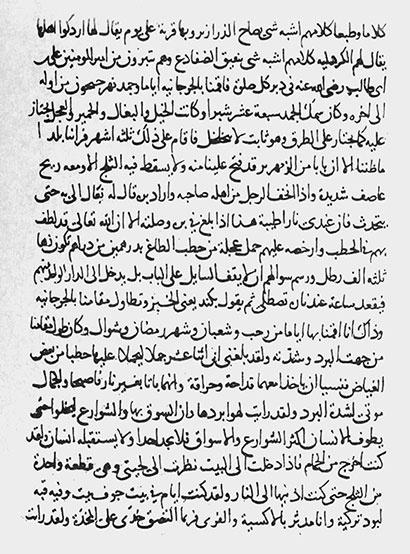 كلاما وطبعا كلامهم اشبه شى بصياح الزرازير وبها قرية على يوم يقال لها اردكوا اهلها
يقال لهم الكردلية كلامهم اشبه شى بنقيق الضفادع وهم يتبرون من امير المومنين على بن
ابى طالب رضى الله عنه فى دبر كل صلاة فاقمنا بالجرجانيه اياما وجمد نهر جيحون من اوله
الى اخره وكان سمك الجمد سبعة عشر شبرا وكانت الخيل والبغال والحمير والعجل تجتاز
عليه كما تجتاز على الطرق وهو ثابت لا يتخلخل فاقام على ذلك ثلثه اشهر فراينا بلدا
ما ظننا الا ان بابا من الزمهرير قد فتح علينا منه ولا يسقط فيه الثلج الا ومعه ريح
عاصف شديدة واذا اتحف الرجل من اهله صاحبه واراد بره قال له تعال الى حتى
نتحدث فان عندى نارا طيبة هذا اذا بلغ فى بره وصلته الا ان الله تعالى قد لطف
بهم فى الحطب وارخصه عليهم حمل عجلة من حطب الطاغ بدرهمين من دراهم تكون زها
ثلثه الاف رطل ورسم سوالهم ان لا يقف السايل على الباب بل يدخل الى دار الواحد منهم
فيقعد ساعة عند ناره يصطلى ثم يقول بكند يعنى الخبز وتطاول مقامنا بالجرجانيه
وذاك انا اقمنا بها اياما من رجب وشعبان وشهر رمضان وشوال وكان طول مقامنا
من جهت البرد وشدته ولقد بلغنى ان اثنا عشر جملا ليحملا عليها حطبا من بعض
الغياض فنسيا ان ياخذا معهما قداحة وحراقة وانهما باتا بغير نار فاصبحا والجمال
موتى لشدة البرد ولقد رايت لهوا بردها وان السوق بها والشوارع لتخلوا حتى
يطوف الانسان اكثر الشوارع والاسواق فلا يجد احدا ولا يستقبله انسان ولقد
كنت اخرج من الحمام فاذا دخلت الى البيت نظرت الى لحيتى وهى قطعة واحدة
من الثلج حتى كنت ادنيها الى النار ولقد كنت انام فى بيت جوف بيت وفيه قبه
لبود تركية وانا مدثر بالاكسية والفرى فربما التصق خدى على المخدة ولقد رايت